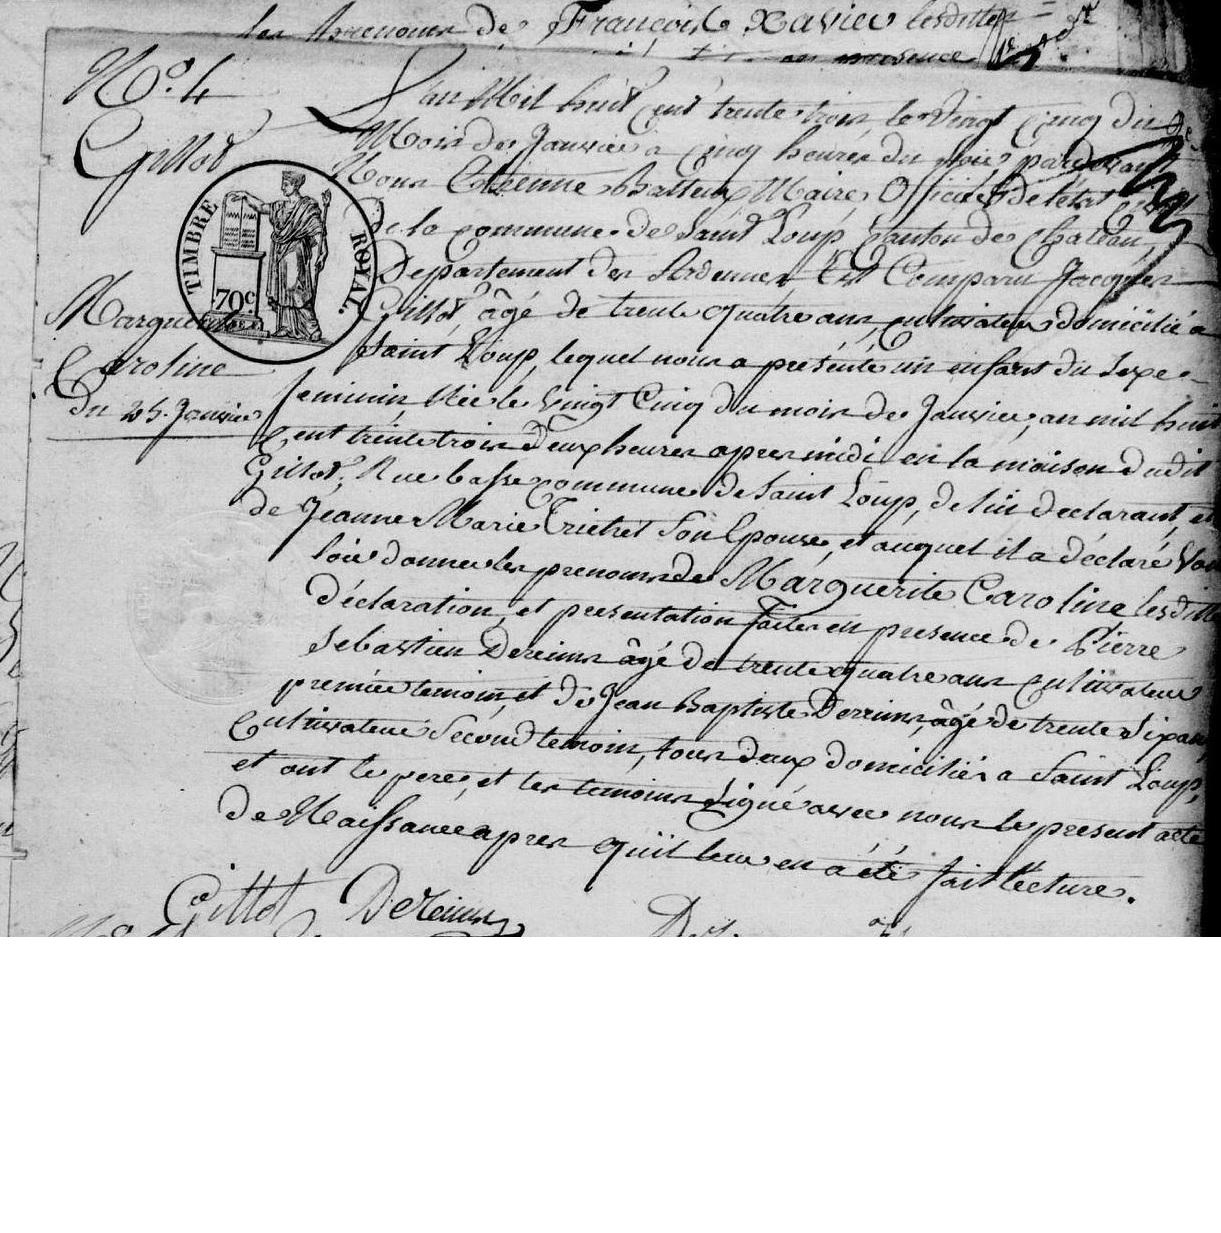 les prenoms de François Xavier lesdittes
en presence
No. 4
Gillot
Marguerite
Caroline
du 25. Janvier
TIMBRE ROYAL.
70c
L'an Mil huit cent trente trois, le Vingt Cinq du
Mois de Janvier à cinq heures du soir, pardevant
Nous Etienne Batteux Maire, Officier de l'état Civil
de la commune de Saint Loup, Canton de Chateau,
Département des Ardennes Est Comparu Jacques
Gillot, âgé de trente quatre ans, cultivateur domicilié à
Saint Loup, lequel nous a présenté un enfant du sexe
feminin Née le Vingt Cinq du mois de Janvier, an mil huit
Cent trente trois Deux heures apres midi en la maison dudit
Gillot, Rue basse commune de Saint Loup, de lui declarant, et
de Jeanne Marie Trictret Son Epouse, et auquel il a déclaré Vou
loir donner les prenoms de Marguerite Caroline, lesdittes
Déclaration, et presentation faites en presence de Pierre
Sebastien Dereims âgé de trente quatre ans cultivateur
premier temoin, et de Jean Baptiste Dereims, âgé de trente Six ans
Cultivateur Sécond temoin, tous deux domiciliés a Saint Loup,
et ont le pere, et les temoins Signé avec nous le present acte
de Naissance apres qu'il leur en a été fait Lecture.
Gillot Dereims